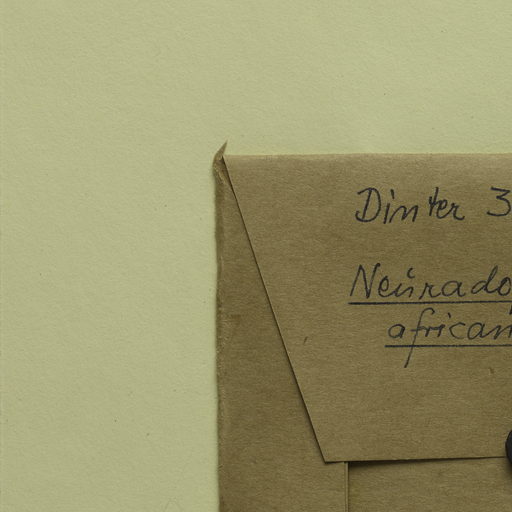 Dinter 3
Neurado
african